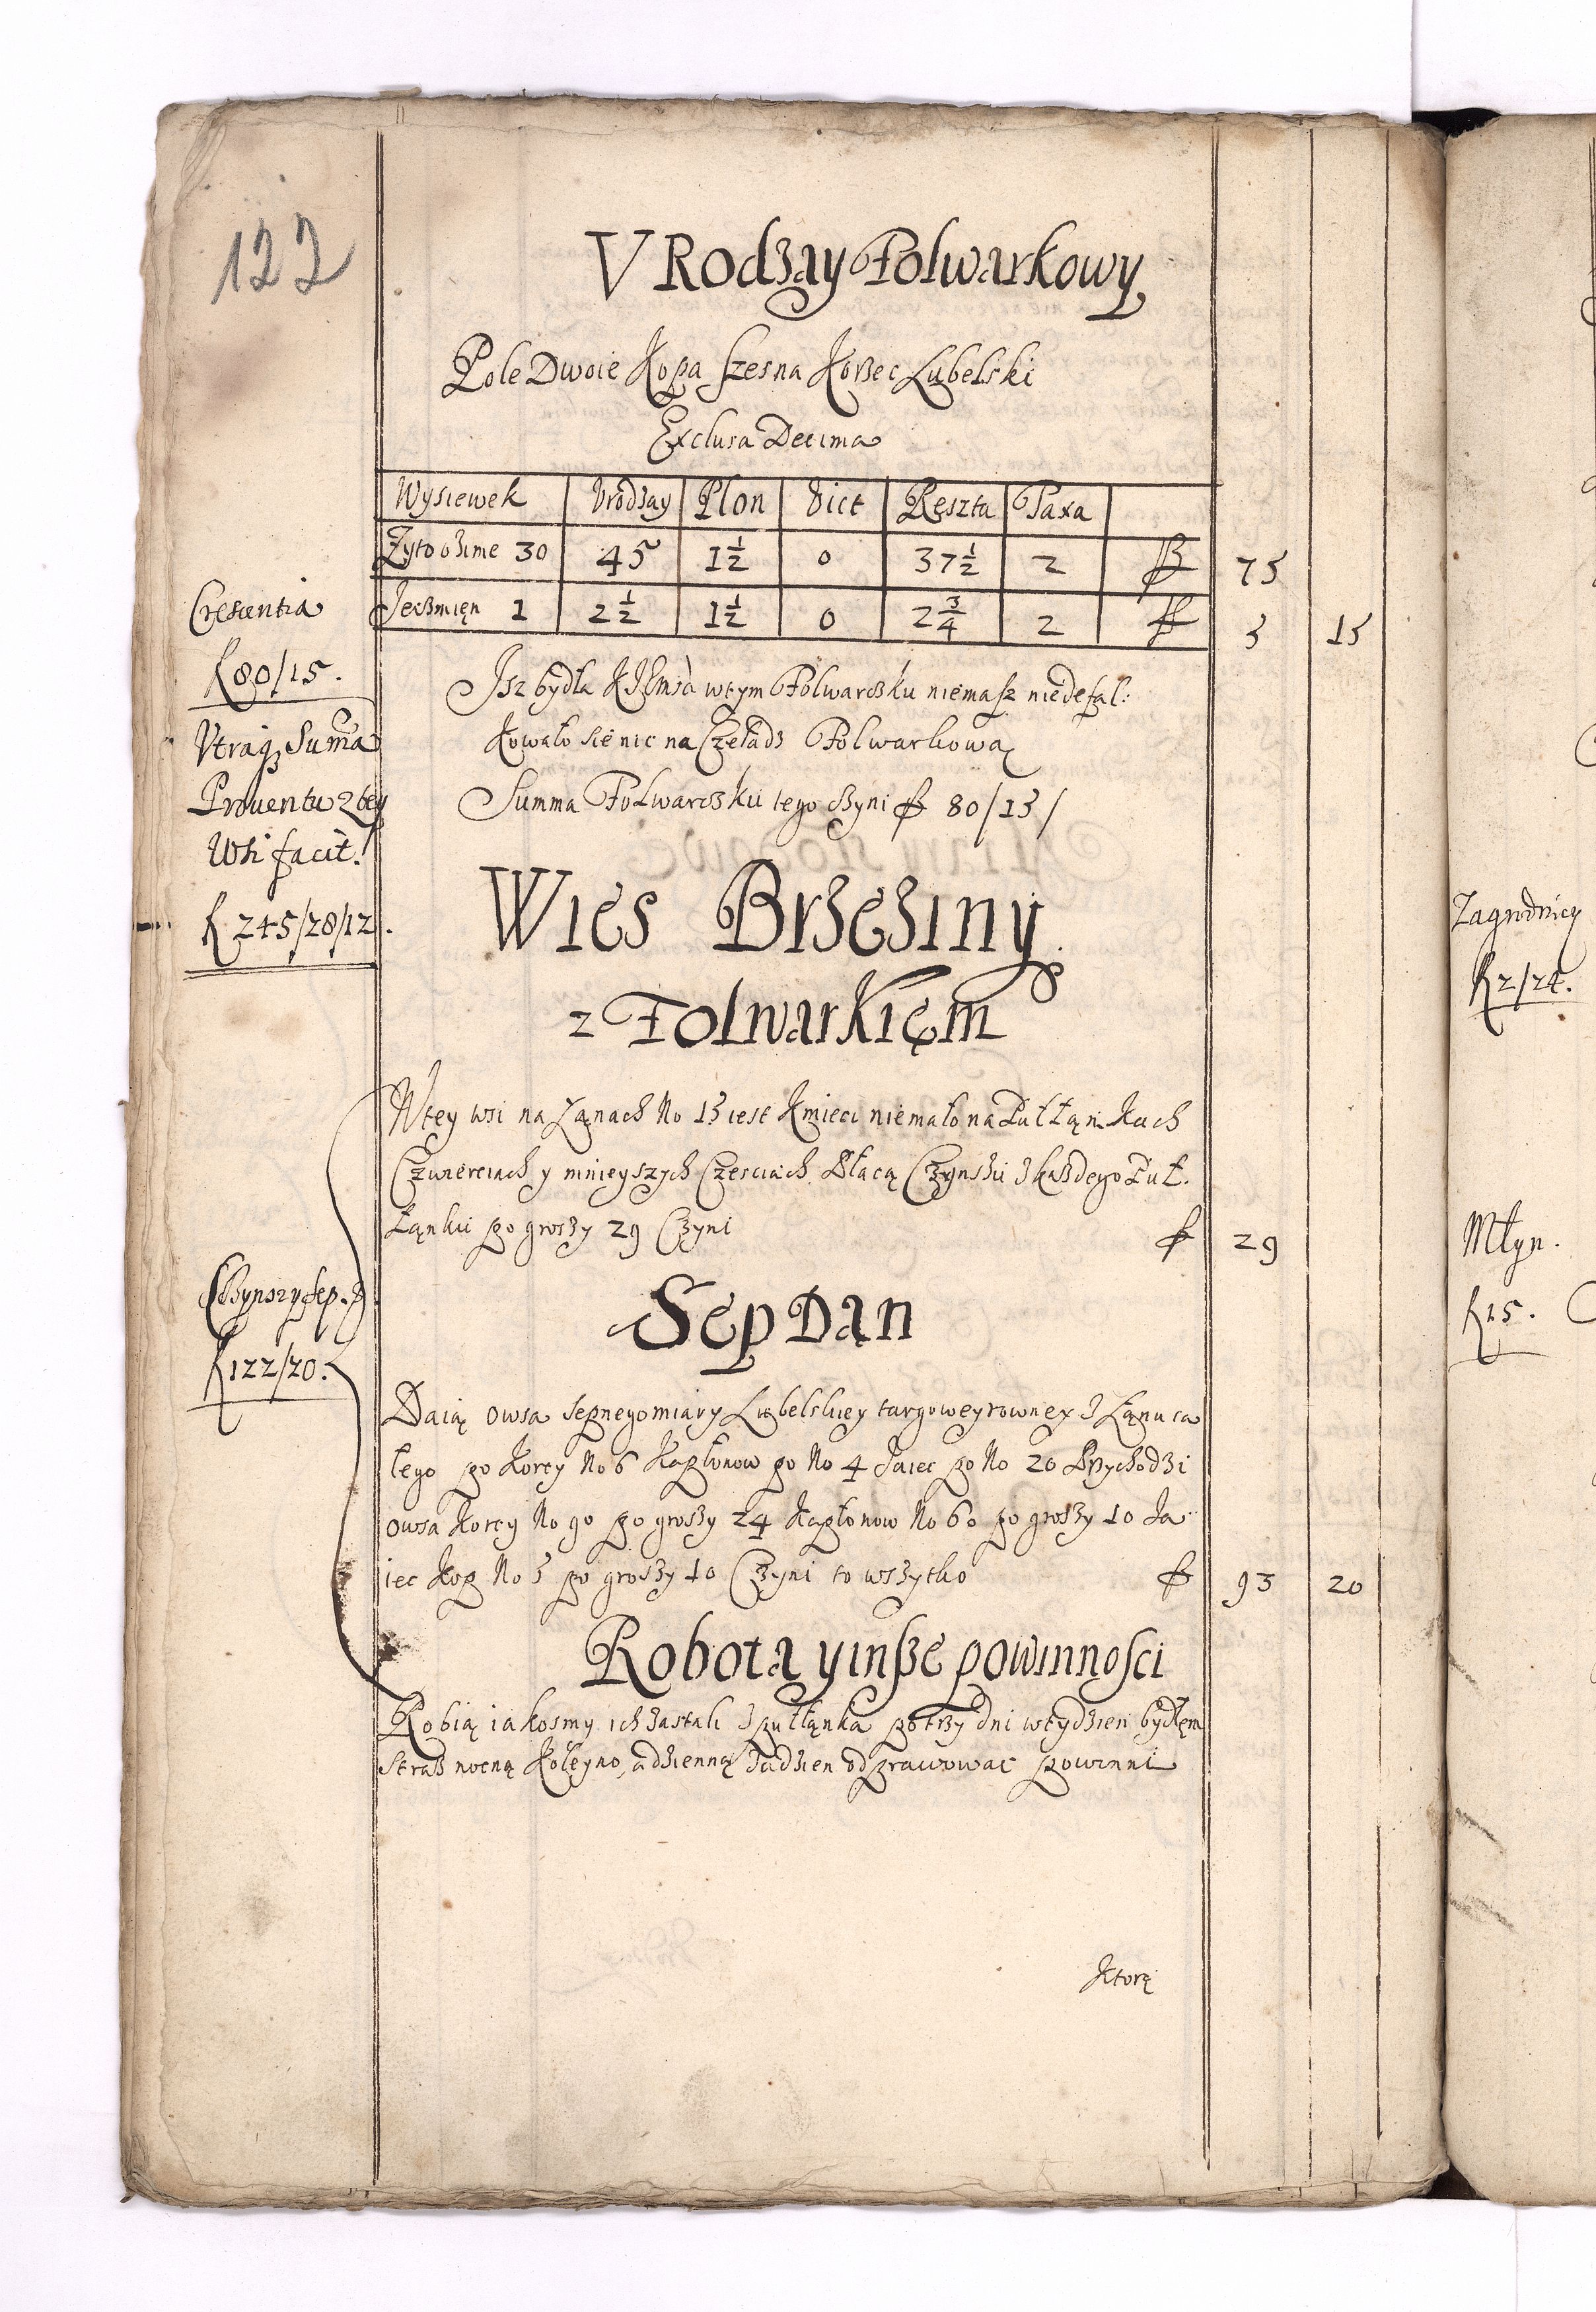 122
VRodzay Folwarkowy
Pole Dwoie Kopa szesna Korzec Lubelski
Exclusa Decima
Wysiewek Vrodzay Plon Vict Ręszta Taxa
Zyto ozime 30 45 1½ 0 37½ 2 f 75
Jeczmięn 1 2½ 1½ 0 2¾ 2 f 5 15
Crescentia
f 80/15.
Isz bydła w tym Folwarczku niemasz niedefal:
kowało się nic na Czeladz Folwarkową
Summa Folwarczku tego czyni f 80/15/
Vtraqz Suma
Prouentu z tey
Wsi facit.
f 245/28/12.
Wies Brzeziny
z Folwarkięm
Wtey wsi na Łąnach No 15 iest Kmieci niemało na Puł Łąnkach
Czwierciach y mnieyszych Czesciach. Płacą Czynszu z kazdego Puł.
Łąnku po groszy 29 Czyni f 29
Czynszy sep. D
f 122/20.
Sep Dąn
Daią owsa sepnego miary Lubelskiey targowey rowney z Łąnu ca
łego po Korcy No 6 Kapłonow po No 4 Jaiec po No 20 Przychodzi
owsa Korcy No 90 po groszy 24 Kapłonow No 60 po groszy 10 Ja
iec Kop No 5 po groszy 10 Czyni to wszytko f 93 20
Robota y insze powinnosci
Robią iakosmy ich zastali z pułłąnka po trzy dni w tydzien bydłęm
Straz nocną Koleyno, a dzienną Tudzien odprawowac powinni
Ktorę
Zagrodnicy
f 2/24.
Młyn.
f 15.